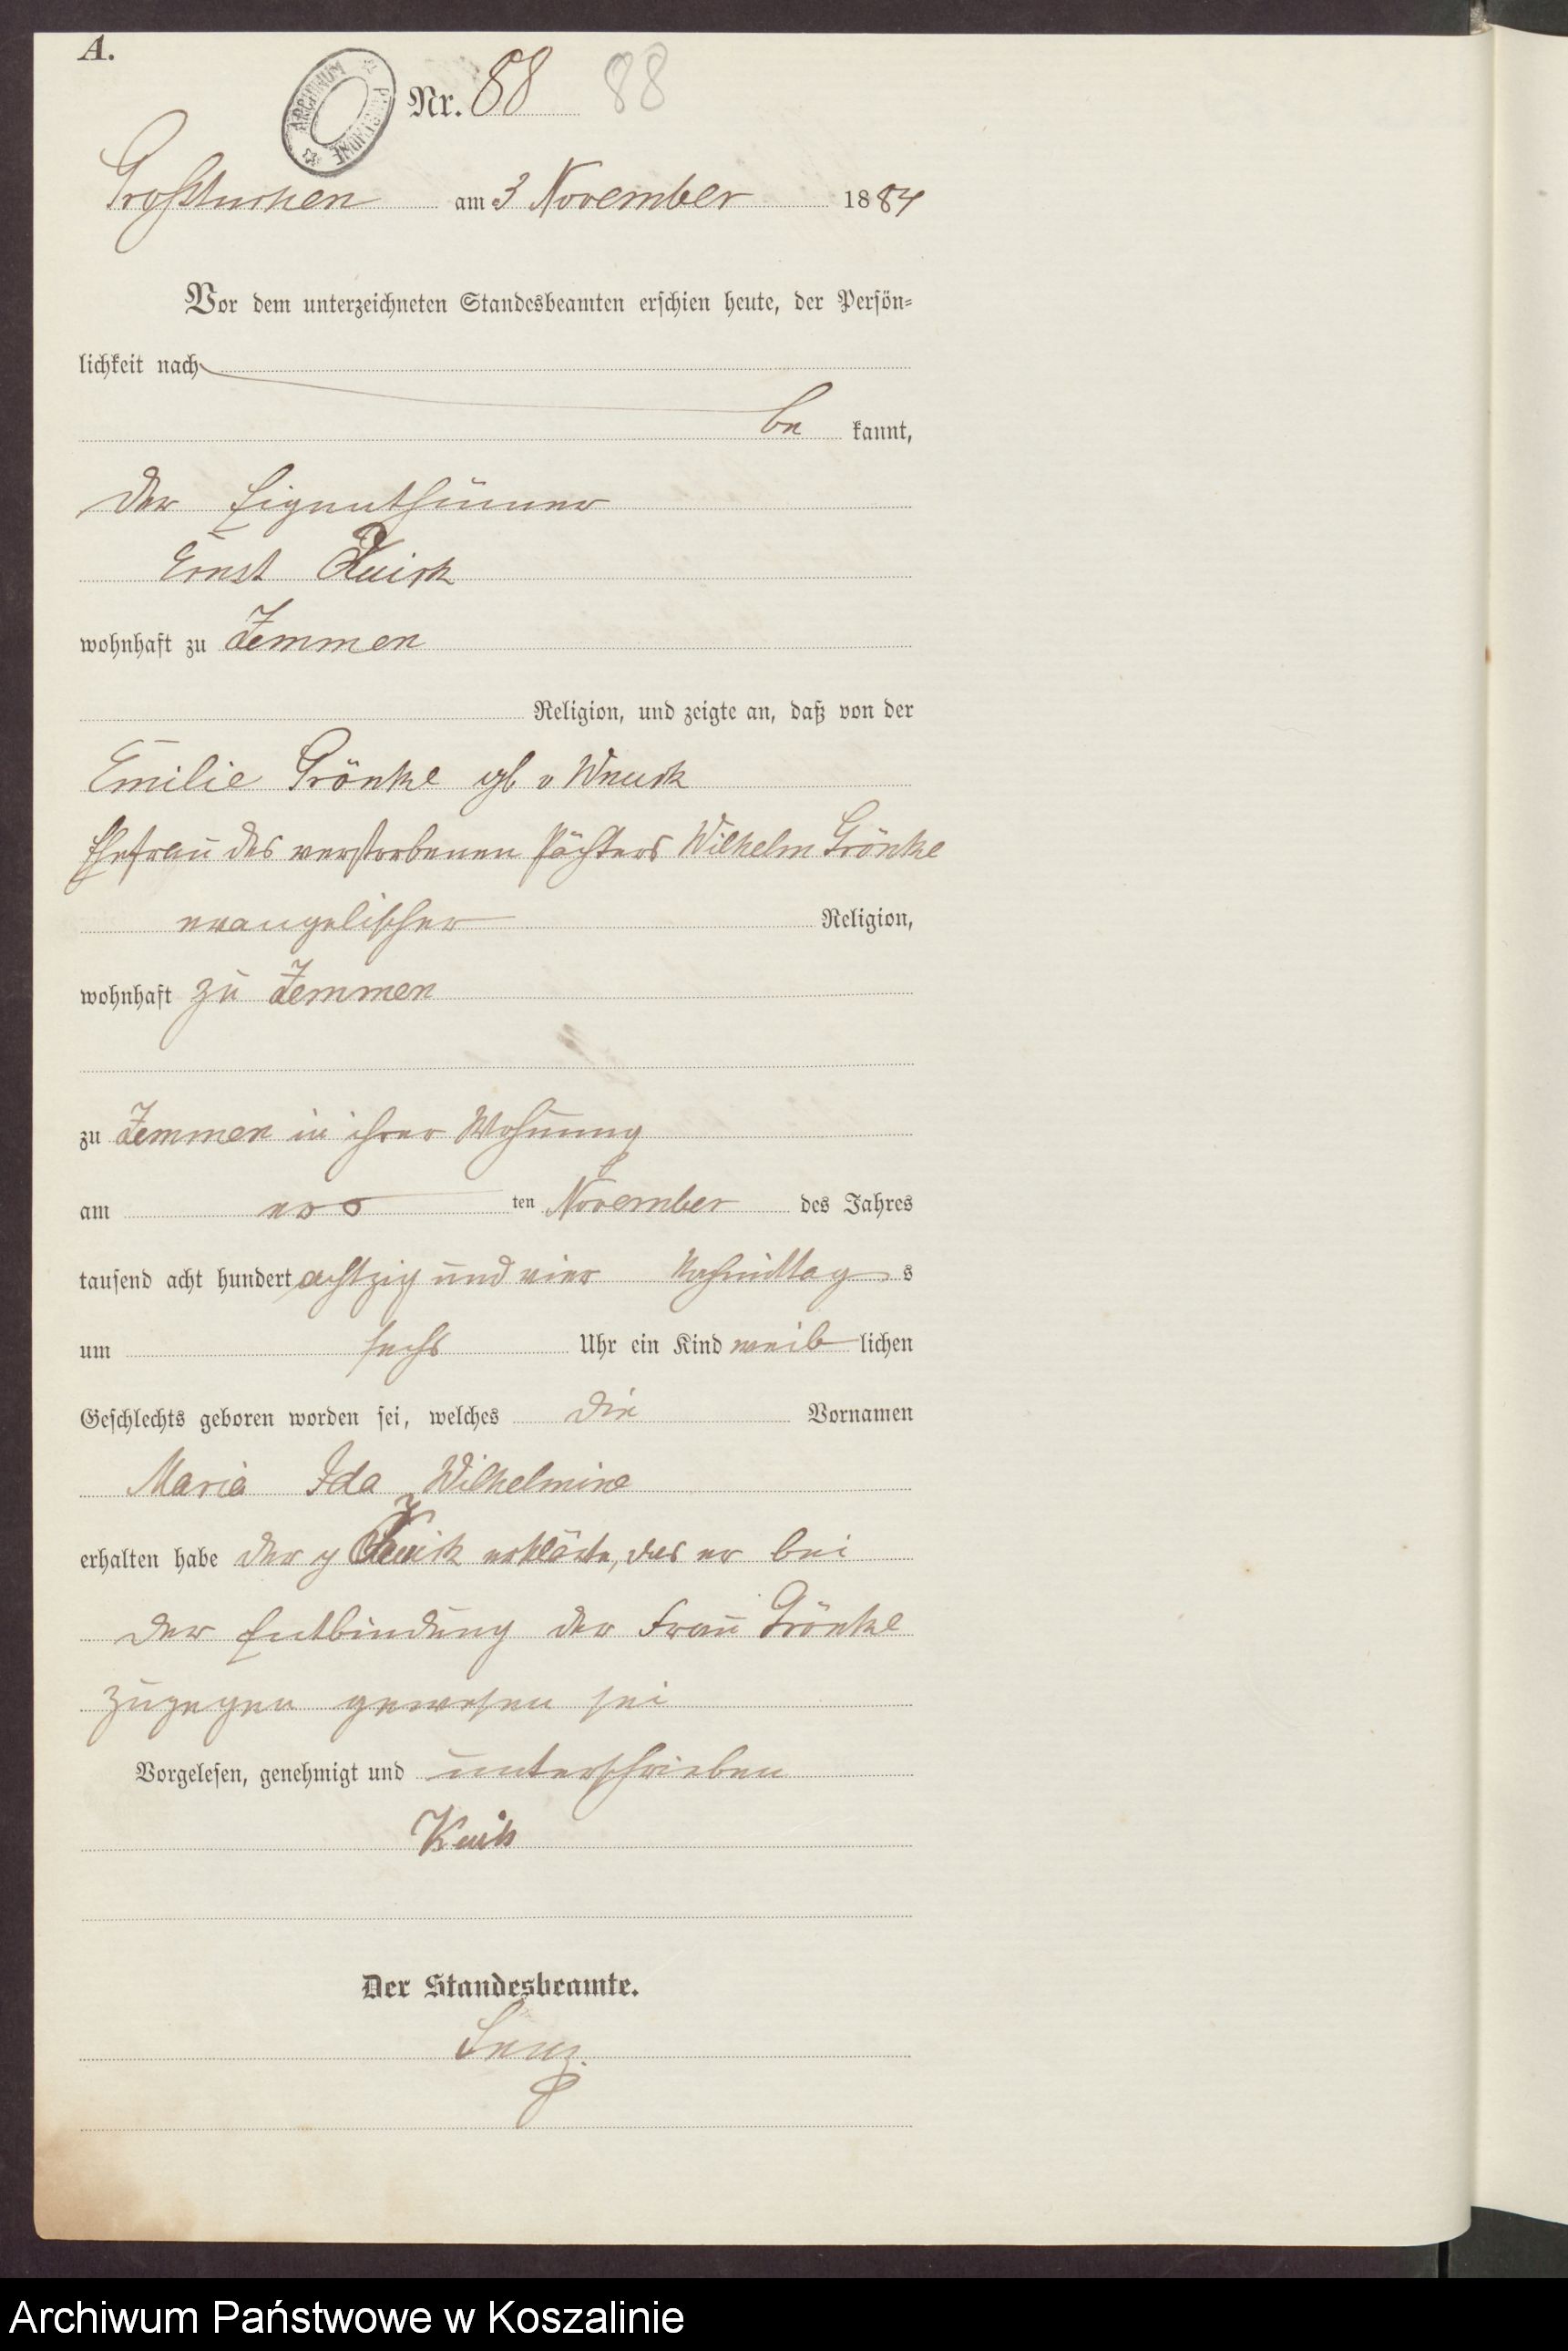 A.
ARCHIWUM PAŃSTWOWE
Nr. 88 88
Großtuchen am 3 November 1884
Vor dem unterzeichneten Standesbeamten erschien heute, der Persön=
lichkeit nach
be kannt,
der Eigenthümer
Ernst
wohnhaft zu Zemmen
Religion, und zeigte an, daß von der
Emilie Grönke gb v Wnuck
Ehefrau des verstorbenen Pächters Wilhelm Grönke
evangelischer Religion,
wohnhaft zu Zemmen
zu Zemmen in ihrer Wohnung
am ten November des Jahres
tausend acht hundert achtzig und vier Nachmittag s
um sechs Uhr ein Kind weib lichen
Geschlechts geboren worden sei, welches die Vornamen
Maria Ida Wilhelmine
erhalten habe der erklärte, das er bei
der Entbindung der Frau Grönke
zugegen gewesen sei
Vorgelesen, genehmigt und unterschrieben
Der Standesbeamte.
Archiwum Państwowe w Koszalinie